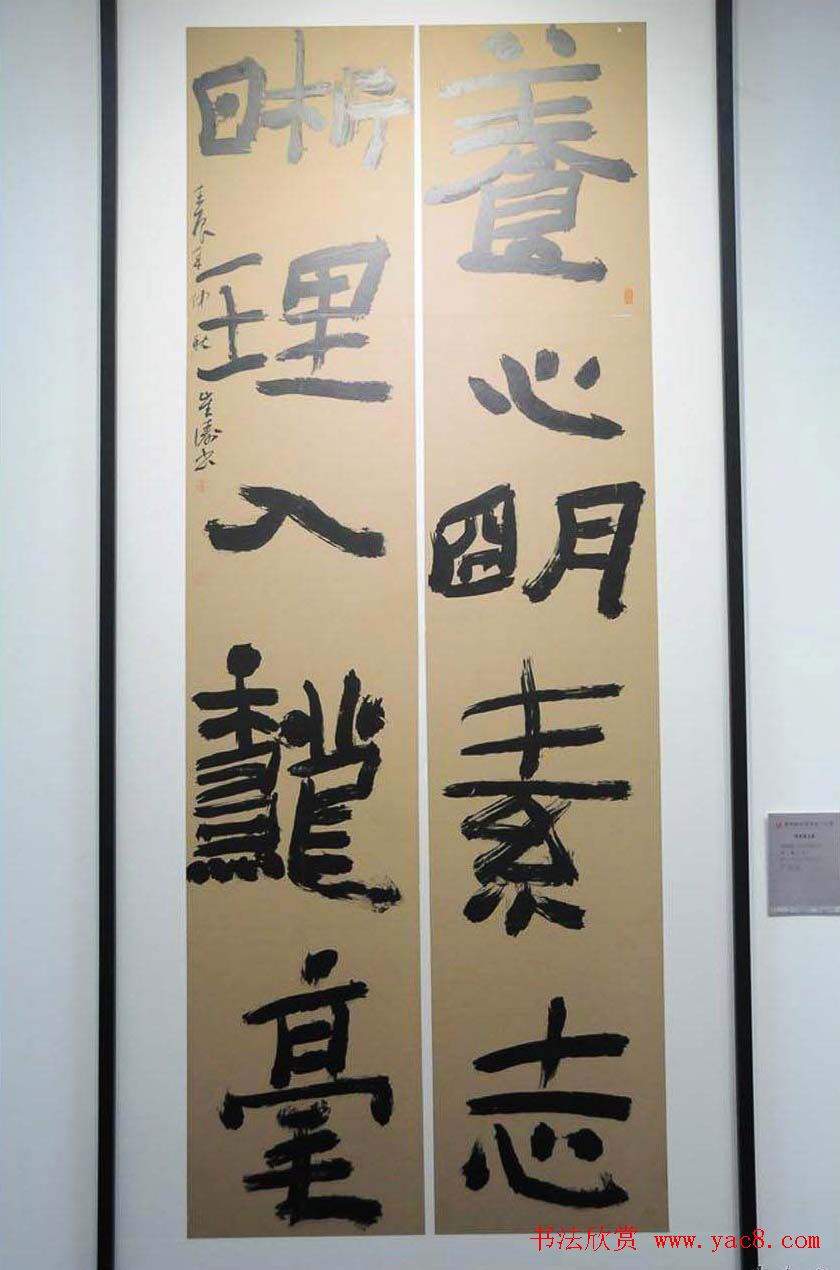 養心朙素志
晰理入毫
壬辰年仲秋 崔濤书
书法欣赏 www.yac8.com